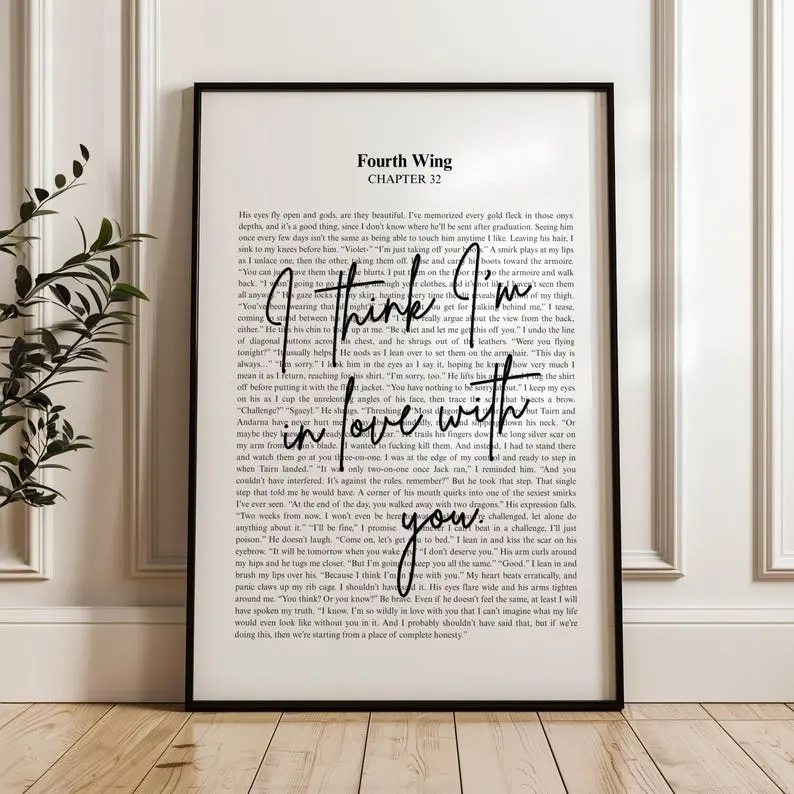 Fourth Wing
CHAPTER 32
His eyes fly open and gods, are they beautiful. I've memorized every gold fleck in those onyx
depths, and it's a good thing, since I don't know where he'll be sent after graduation. Seeing him
once every few days isn't the same as being able to touch him anytime I like. Leaving his hair, I
sink to my knees before him. “Violet-” “I'm just taking off your A smirk plays at my lips
as I unlace one, then the other, taking them off. and car boots toward the armoire.
“You can just leave them there,” he blurts. I put them on the floor next to the armoire and walk
back. “I wasn't going to go through your clothes, and it's not like seen them
all anyway.” His gaze locks on my skin, heating every time the reveals of my thigh.
“You've been wearing that all night?” you get for walking behind me,” I tease,
coming to stand between his really argue about the view from the back,
either.” He tips his chin to look up at me. “Be quiet and let me get this off you.” I undo the line
of diagonal buttons across his chest, and he shrugs out of the leathers. “Were you flying
tonight?” “It usually helps.” He nods as I lean over to set them on the armchair. “This day is
always…” “I'm sorry.” I look him in the eyes as I say it, hoping he knows how very much I
mean it as I return, reaching for his shirt. “I'm sorry, too.” He lifts his arms and I tug the shirt
off before putting it with the flight jacket. “You have nothing to be sorry about.” I keep my
eyes on his as I cup the unrelenting angles of his face, then trace the that bisects a brow.
“Challenge?” “Sgaeyl.” He shrugs. “Threshing.” “Most but Tairn and
Andarna have never hurt me and slipped down his neck. “Or
maybe they knew already He trails his fingers down the long silver scar on
my arm from blade. “I wanted to fucking kill them. And instead, I had to stand there
and watch them go at you three-on-one. I was at the edge of my control and ready to step in
when Tairn landed.” “It was only two-on-one once Jack ran,” I reminded him. “And you
couldn't have interfered. It's against the rules, remember?” But he took that step. That single
step that told me he would have. A corner of his mouth quirks into one of the sexiest smirks
I've ever seen. “At the end of the day, you walked away with two dragons.” His expression falls.
“Two weeks from now, I won't even be here to watch when you're challenged, let alone do
anything about it.” “I'll be fine,” I promise. “Whomever I can't beat in a challenge, I'll just
poison.” He doesn't laugh. “Come on, let's get you to bed.” I lean in and kiss the scar on his
eyebrow. “It will be tomorrow when you wake up.” “I don't deserve you.” His arm curls around
my hips and he tugs me closer. “But I'm going to keep you all the same.” “Good.” I lean in and
brush my lips over his. “Because I think I'm in love with you.” My heart beats erratically, and
panic claws up my rib cage. I shouldn't have said it. His eyes flare wide and his arms tighten
around me. “You think? Or you know?” Be brave. Even if he doesn't feel the same, at least I will
have spoken my truth. “I know. I'm so wildly in love with you that I can't imagine what my life
would even look like without you in it. And I probably shouldn't have said that, but if we're
doing this, then we're starting from a place of complete honesty.”
I think I'm
in love with
you.